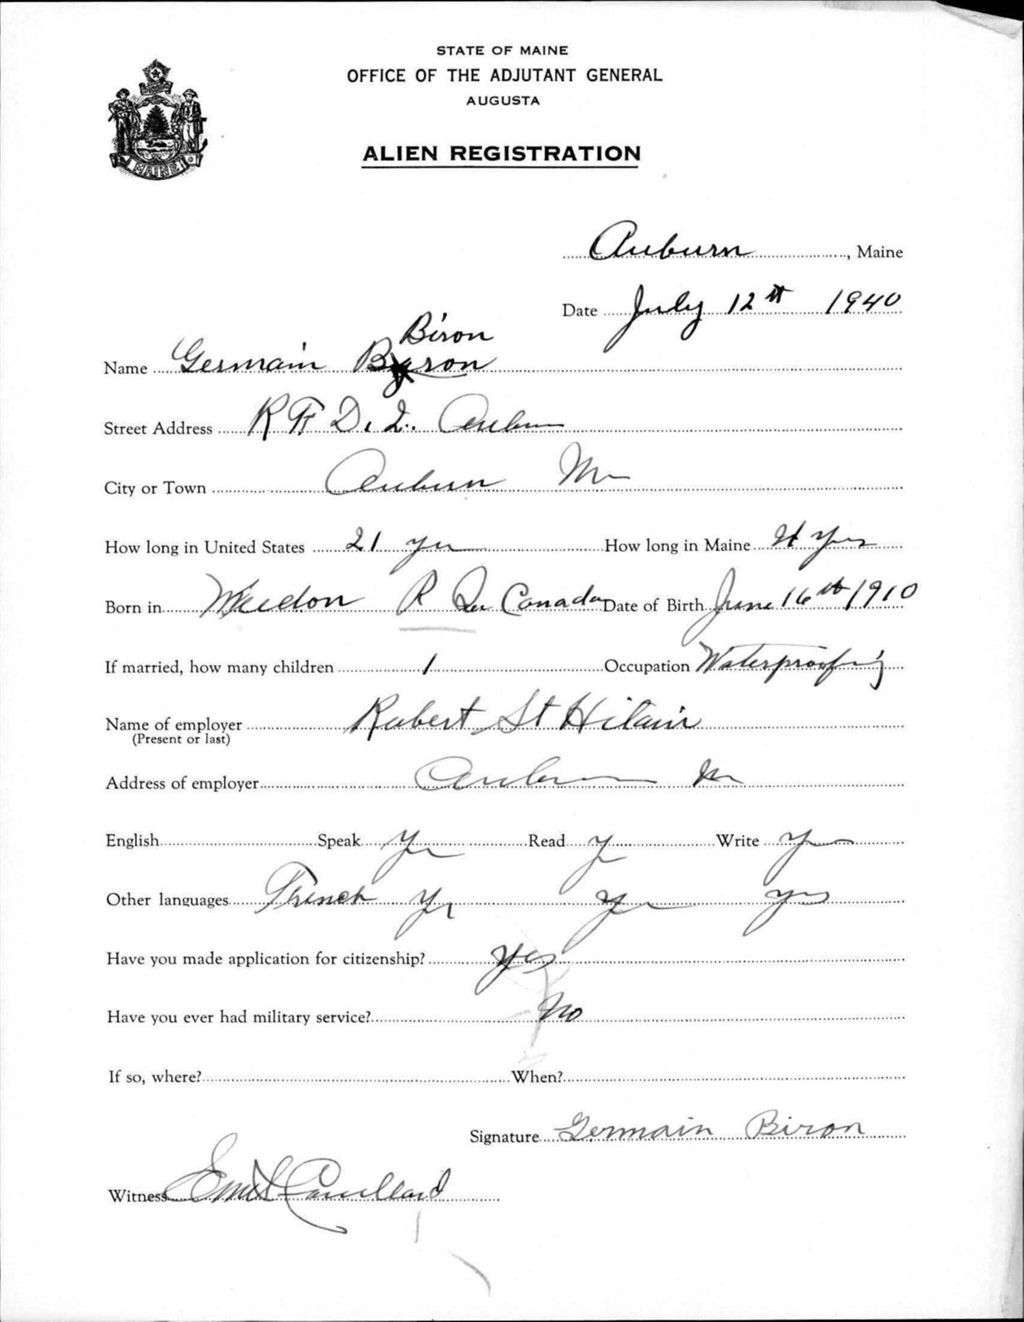 STATE OF MAINE
OFFICE OF THE ADJUTANT GENERAL
AUGUSTA
ALIEN REGISTRATION
MAINE
Auburn, Maine
Date July 12th 1940
Biron
Name Germain Byron
Street Address R F D. 2. Auburn
City or Town Auburn Me
How long in United States 21 yrs How long in Maine yrs
Born in Weedon P Que Canada Date of Birth June 16th 1910
If married, how many children 1 Occupation Waterproofing
Name of employer Robert St Hilair
(Present or last)
Address of employer Auburn Me
English Speak Yes Read Yes Write Yes
Other languages French Yes Yes yes
Have you made application for citizenship? Yes
Have you ever had military service? No
If so, where? When?
Signature Germain Biron
Witness